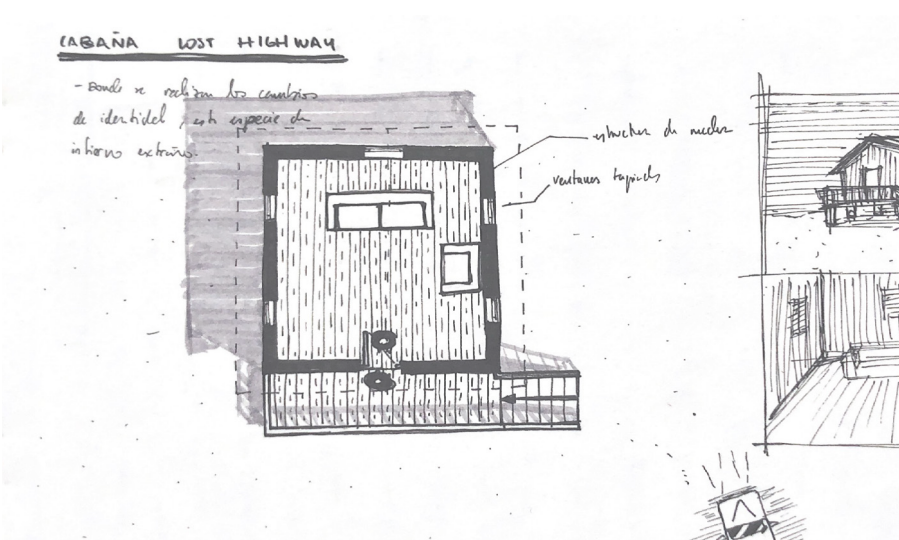 CABAÑA LOST HIGHWAY
- Donde se realizan los cambios
de identidad, esta especie de
infierno extraño.
estructura de madera
ventanas tapiadas